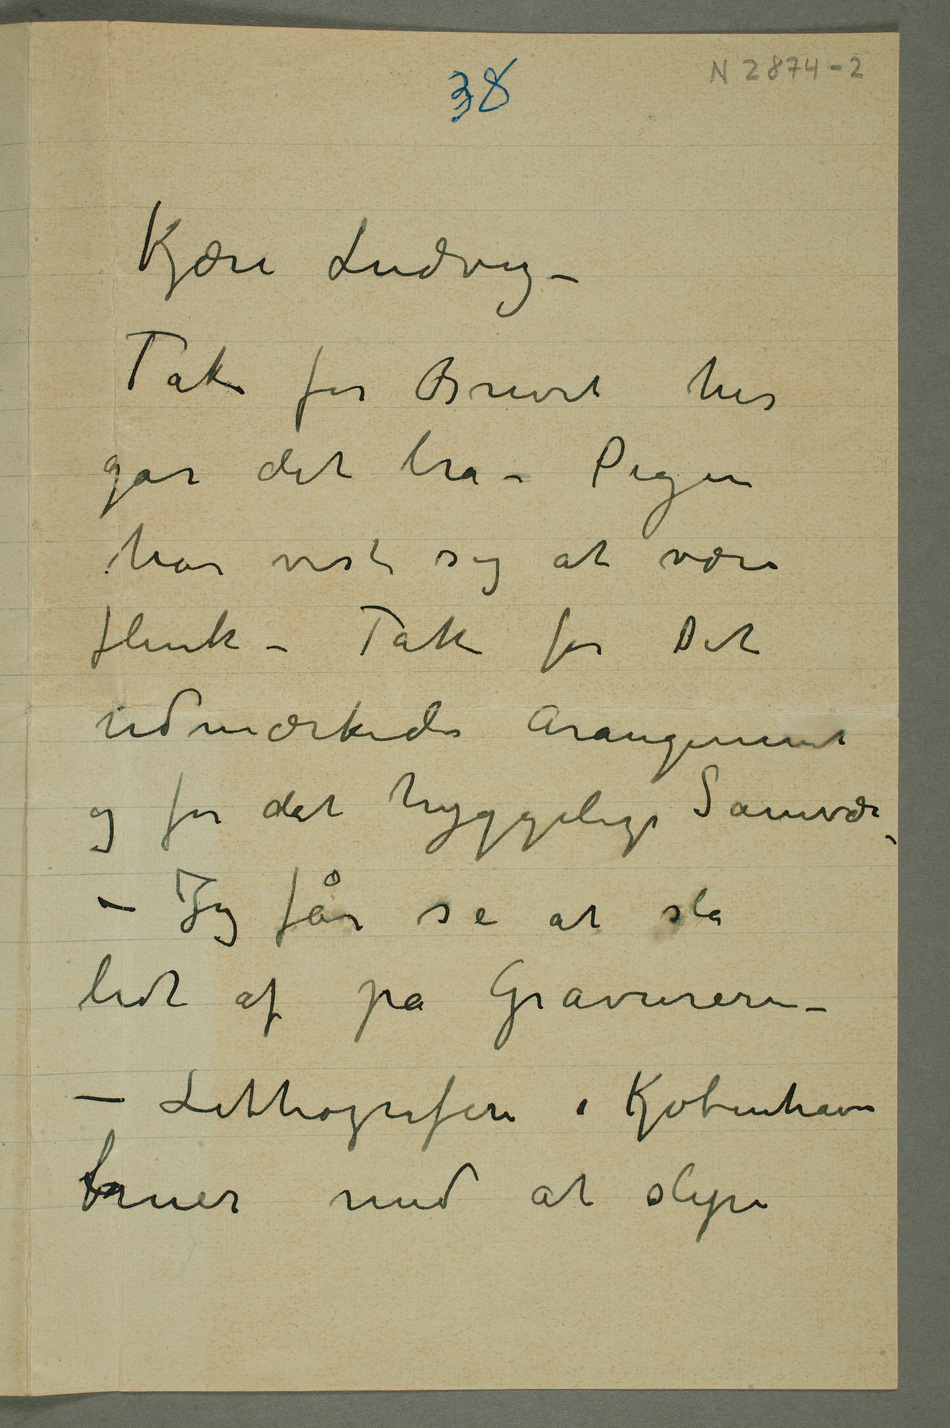 38
N 2874-2
Kjære Ludvig –
Tak for Brevet her
gar det bra – Pigen
har vist sig at være
flink – Tak for Det
udmærkede Arangement
og for det hyggelige Samvær
– Jeg får se at sla
lidt af pa Gravureren –
– Lithografen i Kjøbenhavn
truer med at slipe